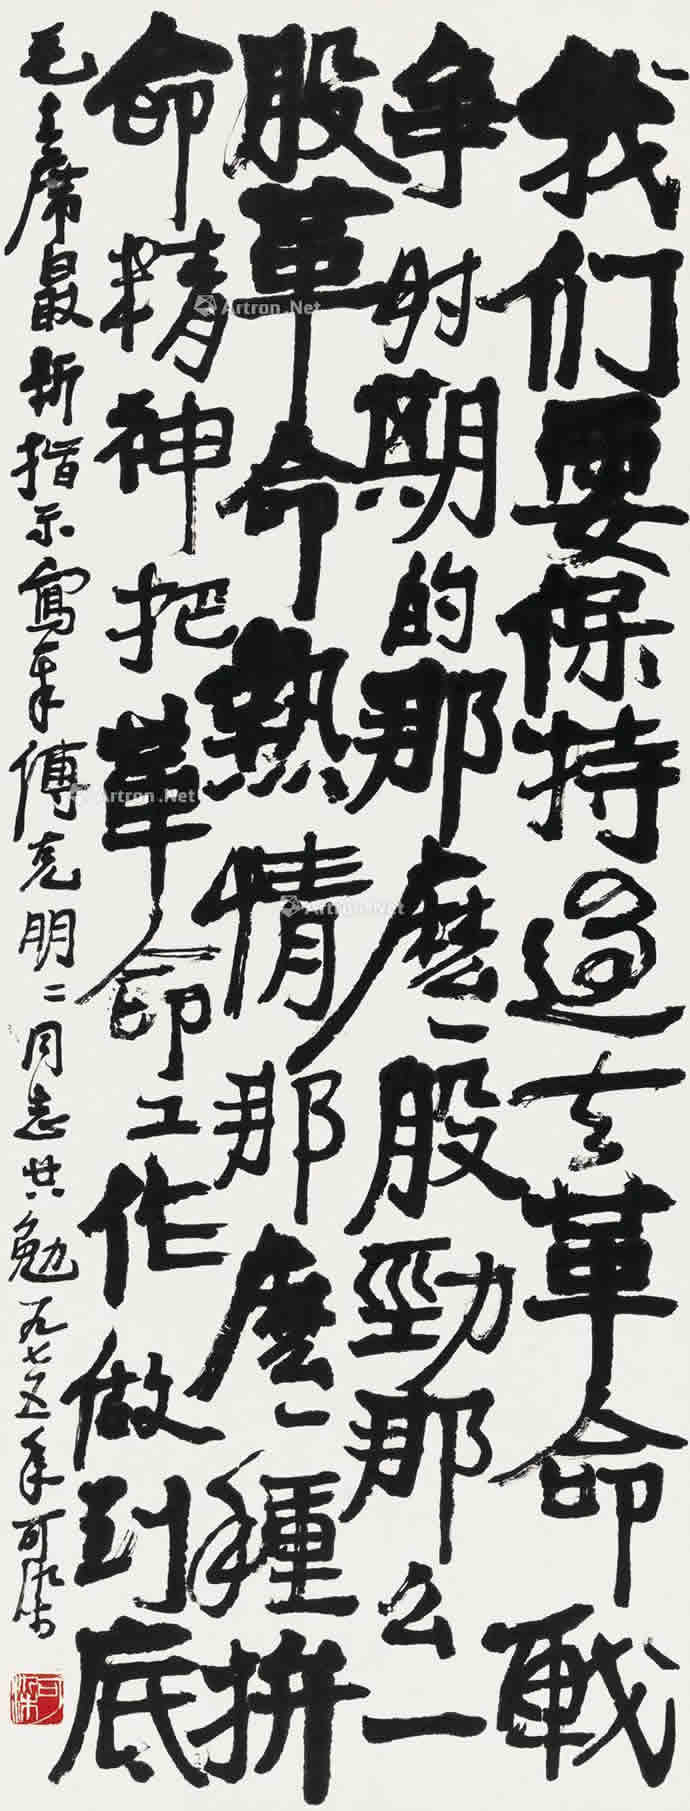 我们要保持过去革命战
争时期的那麽一股勁那么一
股革命熱情那麽一種拼
命精神把革命工作做到底
毛主席最新指示寫奉傅克明二同志共勉一九七五年可染
可染
Artron.Net
Artron.Net
Artron.Net